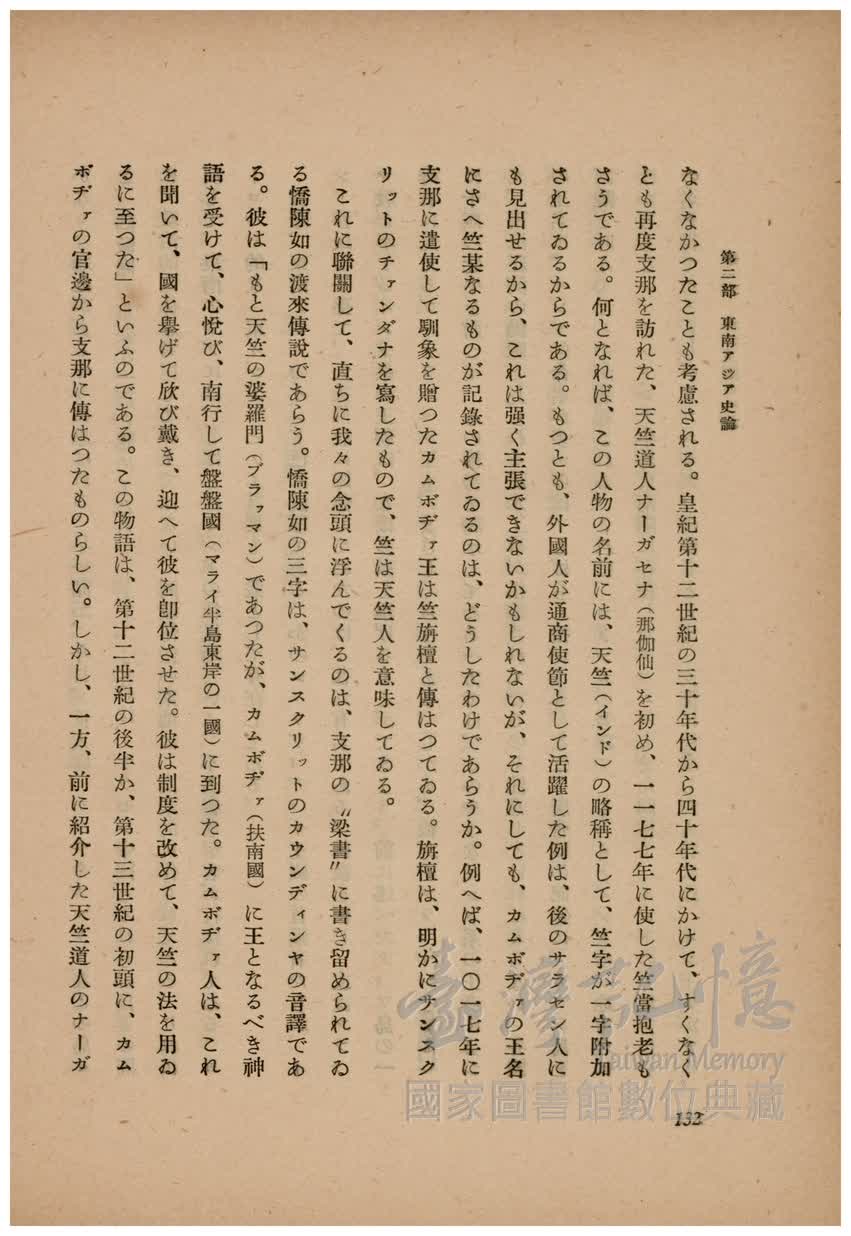 第二部　東南アジア史論
なくなかつたことも考慮される。皇紀第十二世紀の三十年代から四十年代にかけて、すくなく
とも再度支那を訪れた、天竺道人ナーガセナ（那伽仙）を初め、一一七七年に使した竺當抱老も
さうである。何となれば、この人物の名前には、天竺（インド）の略稱として、竺字が一字附加
されてゐるからである。もつとも、外國人が通商使節として活躍した例は、後のサラセン人に
も見出せるから、これは强く主張できないかもしれないが、それにしても、カムボヂァの王名
にさへ竺某なるものが記錄されてゐるのは、どうしたわけであらうか。例へば、一〇一七年に
支那に遣使して馴象を贈つたカムボヂァ王は竺旃檀と傳はつてゐる。旃檀は、明かにサンスク
リットのチァンダナを寫したもので、竺は天竺人を意味してゐる。
これに聯關して、直ちに我々の念頭に浮んでくるのは、支那の〝梁書〟に書き留められてゐ
る憍陳如の渡來傳說であらう。憍陳如の三字は、サンスクリットのカウンディンヤの音譯であ
る。彼は「もと天竺の婆羅門（ブラァマン）であつたが、カムボヂァ（扶南國）に王となるべき神
語を受けて、心悅び、南行して盤盤國（マライ半島東岸の一國）に到つた。カムボヂァ人は、これ
を聞いて、國を擧げて欣び戴き、迎へて彼を卽位させた。彼は制度を改めて、天竺の法を用ゐ
るに至つた」といふのである。この物語は、第十二世紀の後半か、第十三世紀の初頭に、カム
ボヂァの官邊から支那に傳はつたものらしい。しかし、一方、前に紹介した天竺道人のナーガ
132
臺灣記憶
Taiwan Memory
國家圖書館數位典藏